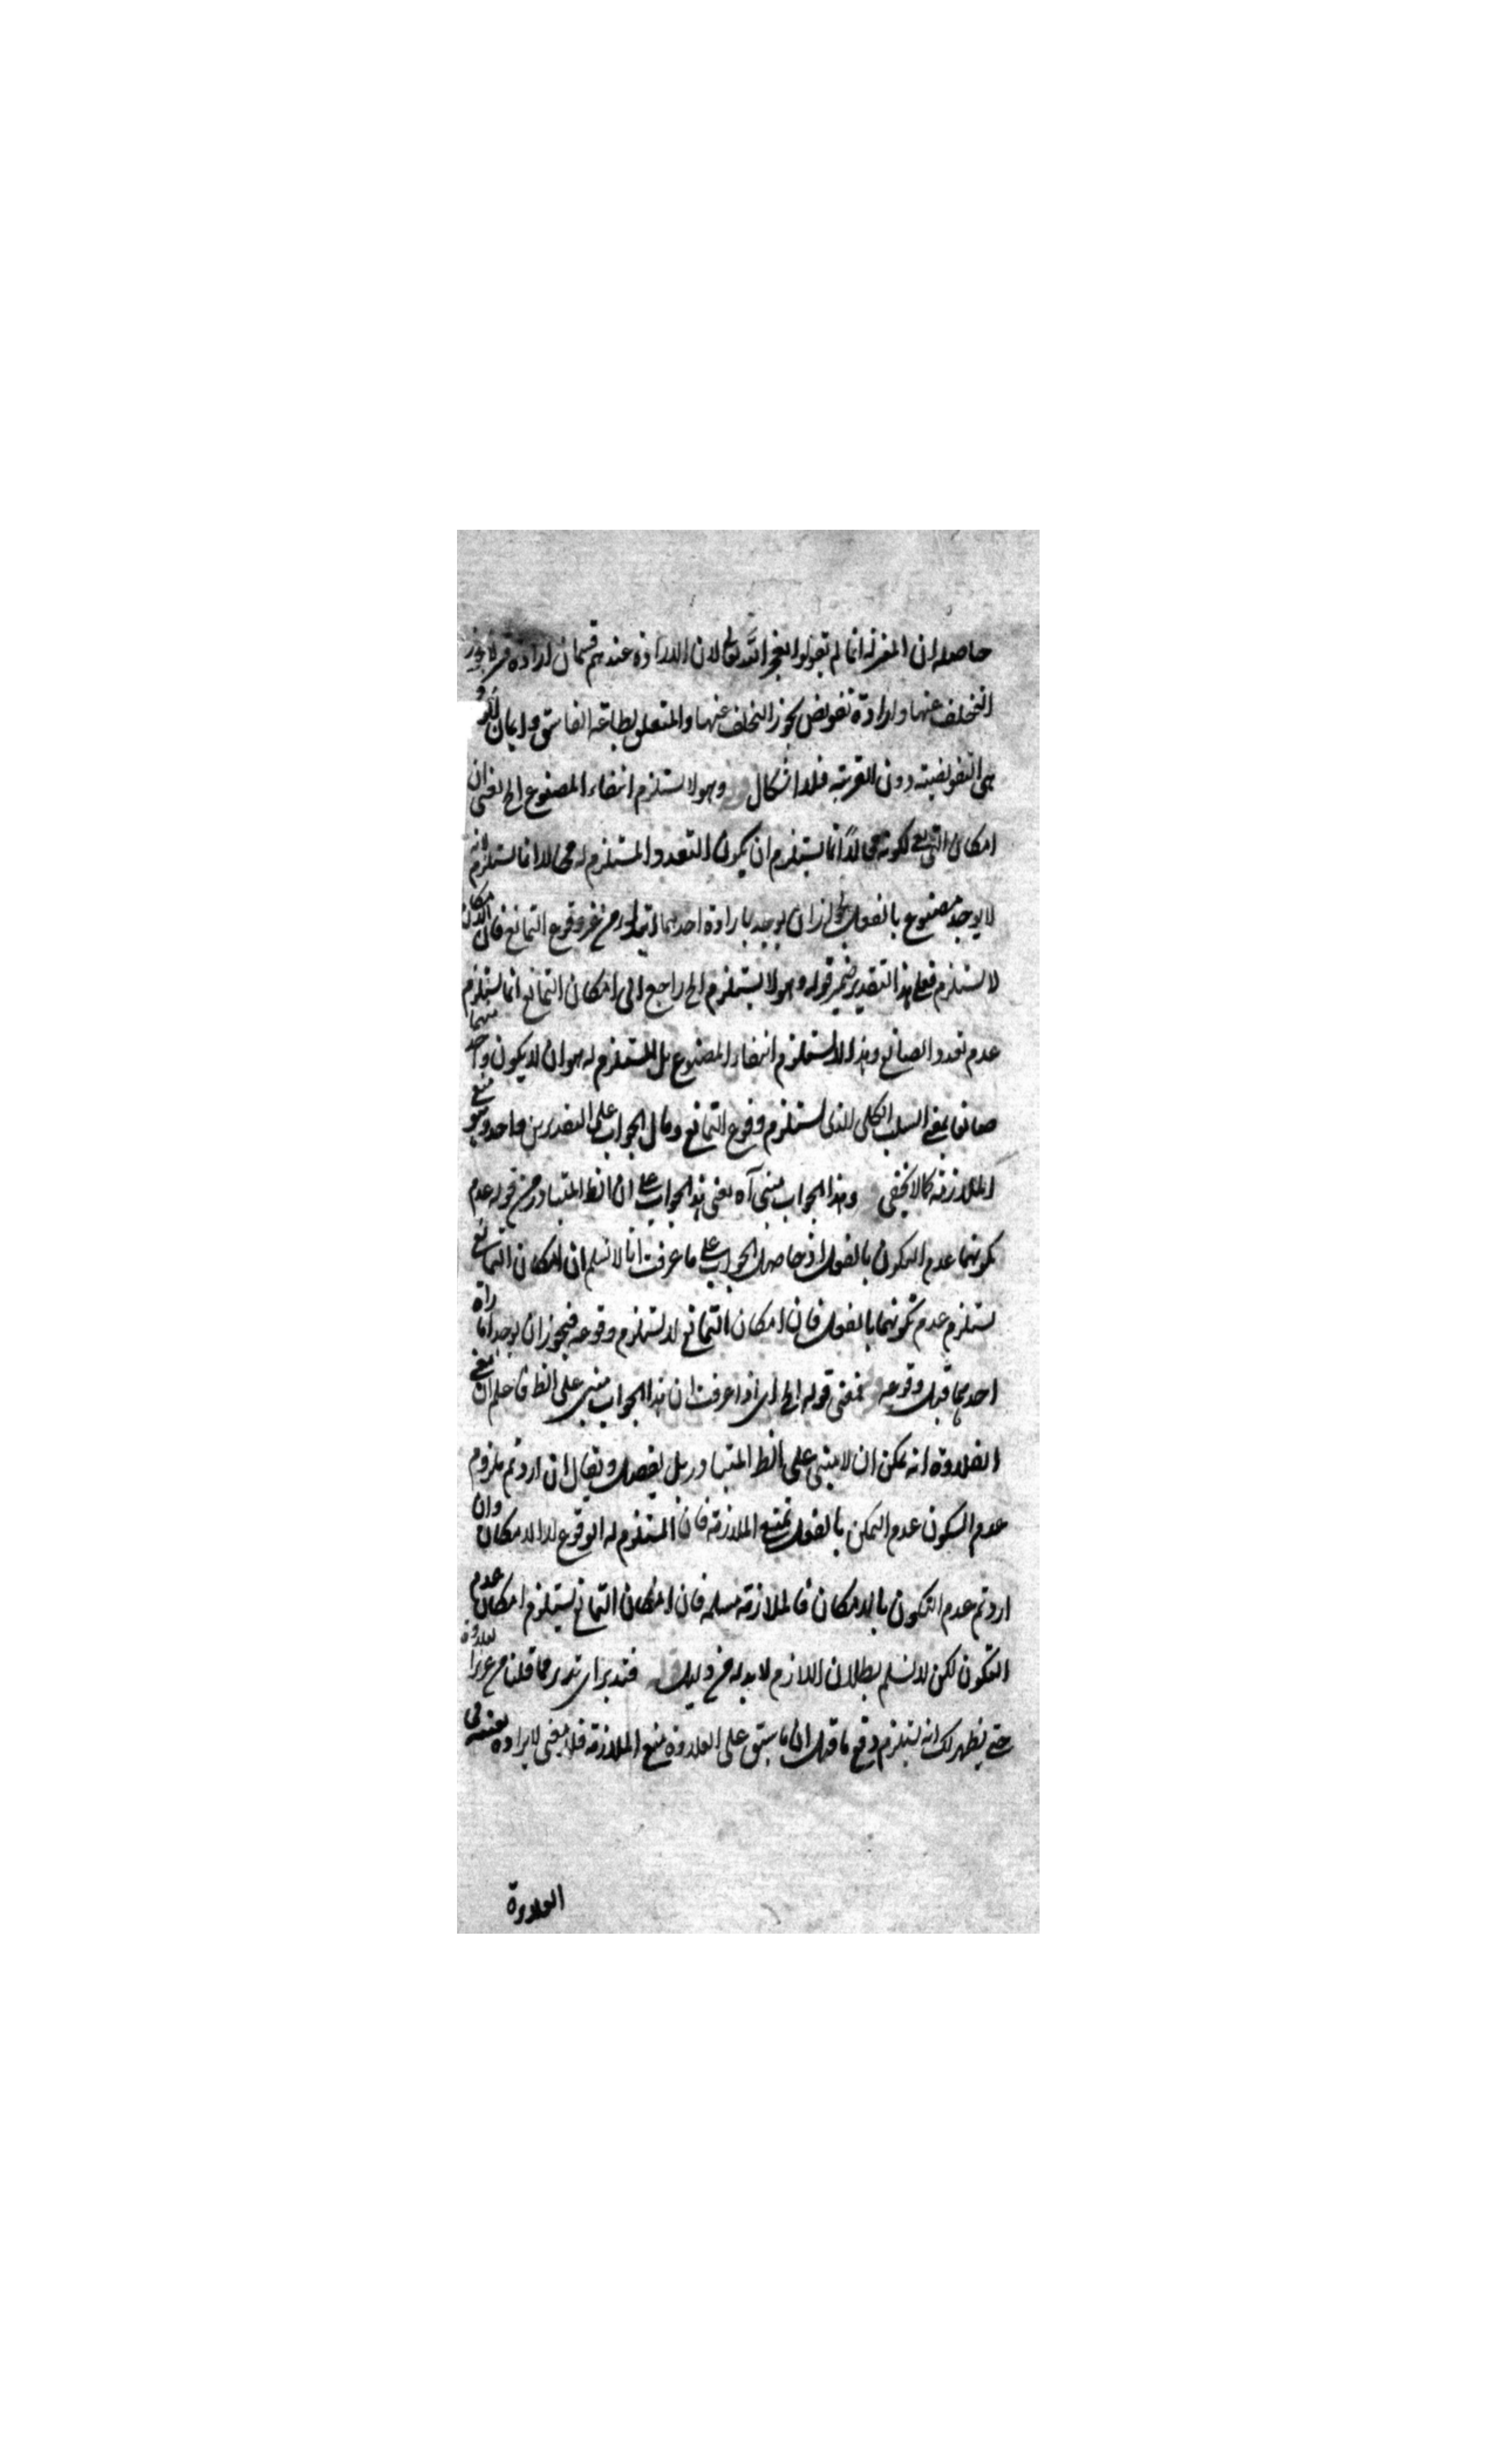 حاصله ان المعتزلة انما لم يقولوا بعجز الله تعالى لان الارادة عندهم قسمان ارادة قسر لا يجوز
التخلف عنها وارادة تفويض يجوز التخلف عنها والمتعلق بطاعة الفاسق وايمان الكافر
هي التفويضية دون القسرية فلا اشكال قوله وهو لا يستلزم انتفاء المصنوع الخ يعنى ان
امكان التمانع لكونه محالا انما يستلزم ان يكون التعدد المستلزم له محالا لا انما يستلزم لانه
لا يوجد مصنوع بالفعل لجواز ان يوجد بارادة احدهما ابتداء من غير وقوع التمانع فان الامكان
لا يستلزم فعلى هذا التقدير ضمير قوله وهو لا يستلزم الخ راجع الى امكان التمانع انما يستلزم
عدم تعدد الصانع وهذا لا يستلزم انتفاء المصنوع بل المستلزم له هو ان لا يكون واحد منهما
صانعا بمعنى السلب الكلى الذى يستلزم وقوع التمانع ومآل الجواب على التقديرين واحد وهو منع
الملازمة كما لا يخفى وهذا الجواب مبنى آه يعنى هذا الجواب على ان الظ المتبادر من قوله عدم
تكونهما عدم التكون بالفعل اذ حاصل الجواب على ما عرفت انا لا نسلم ان امكان التمانع
يستلزم عدم تكونهما بالفعل فان امكان التمانع لا يستلزم وقوعه فيجوز ان يوجد بارادة
احدهما قبل وقوعه فمعنى قوله الخ اى اذا عرفت ان هذا الجواب مبنى على الظ فاعلم ان معنى
العلاوة انه يمكن ان لا يبنى على الظ المتبادر بل يفصل ويقال ان اردتم بلزوم
عدم التكون عدم التكون بالفعل نمنع الملازمة فان المستلزم له الوقوع لا الامكان وان
اردتم عدم التكون بالامكان فالملازمة مسلمة فان امكان التمانع يستلزم امكان عدم
التكون لكن لا نسلم بطلان اللازم لا بد له من دليل قوله فتدبر اى تدبر مما قلنا من
حتى يظهر لك انه يستلزم دفع ما قيل ان ما سبق على العلاوة منع الملازمة فلا معنى لايراده بعنوان
العلاوة